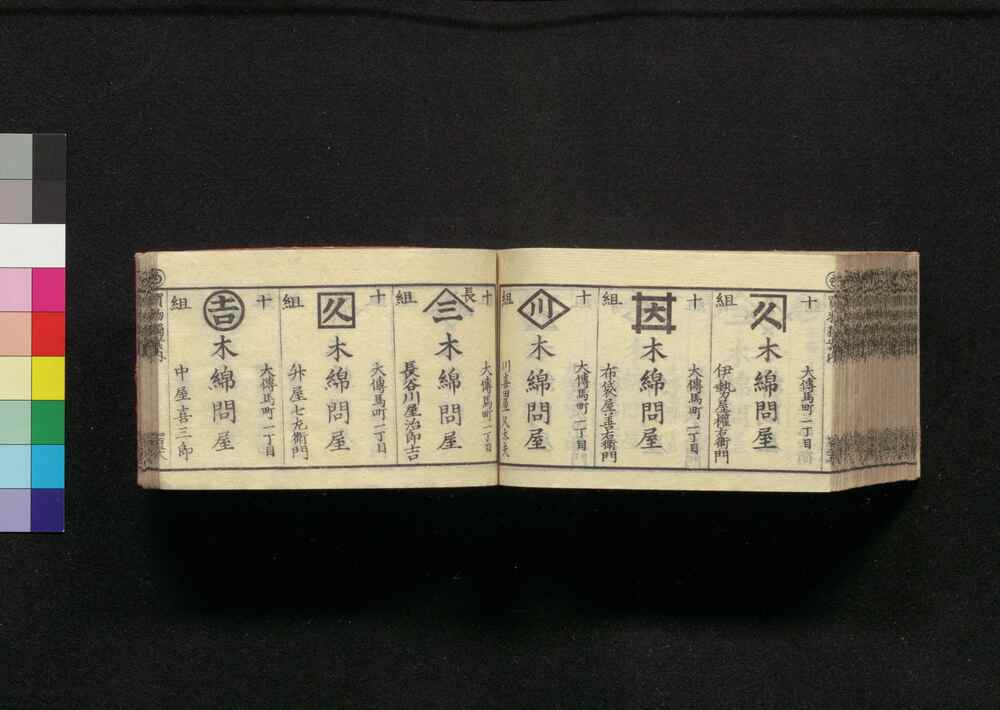 十組
久
木綿問屋
大傳馬町一丁目
伊勢屋權右衛門
十組
木綿問屋
大傳馬町一丁目
布袋屋善右衛門
十組
川
木綿問屋
大傳馬町一丁目
川喜田屋久太夫
十組
長
三
木綿問屋
大傳馬町一丁目
長谷川屋治郎吉
十組
久
木綿問屋
大傳馬町一丁目
升屋七左衛門
十組
吉
木綿問屋
大傳馬町一丁目
中屋喜三郎